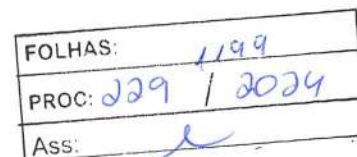 FOLHAS: 1199
PROC: 229 / 2024
Ass: